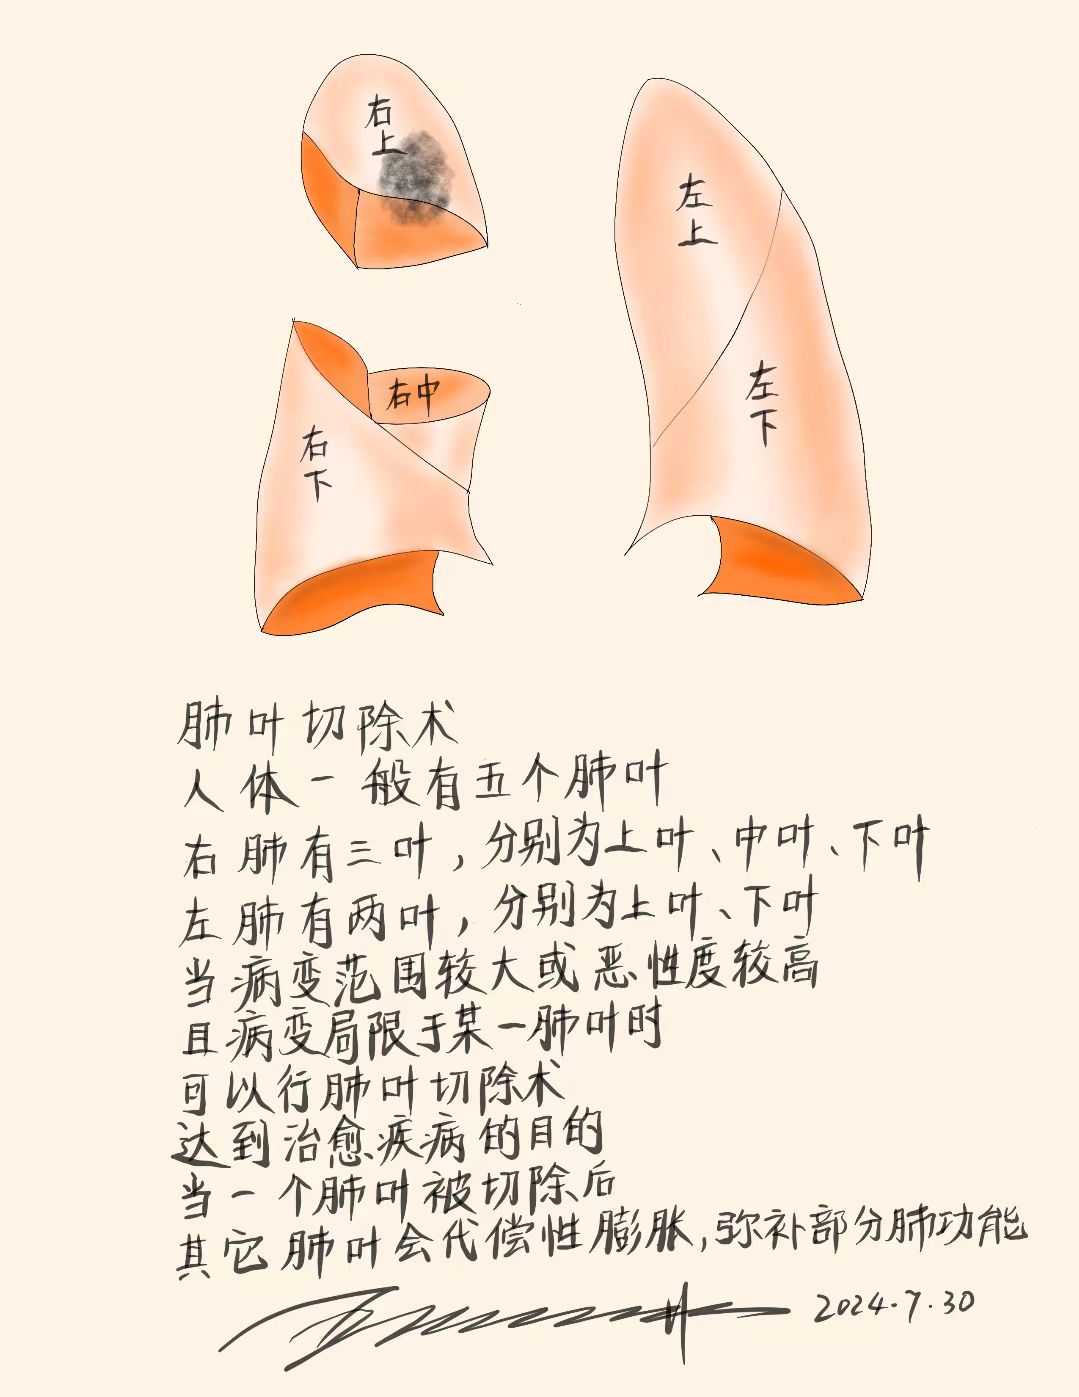 右上
左上
右中
左下
右下
肺叶切除术
人体一般有五个肺叶
右肺有三叶，分别为上叶、中叶、下叶
左肺有两叶，分别为上叶、下叶
当病变范围较大或恶性度较高
且病变局限于某一肺叶时
可以行肺叶切除术
达到治愈疾病的目的
当一个肺叶被切除后
其它肺叶会代偿性膨胀，弥补部分肺功能
2024.7.30